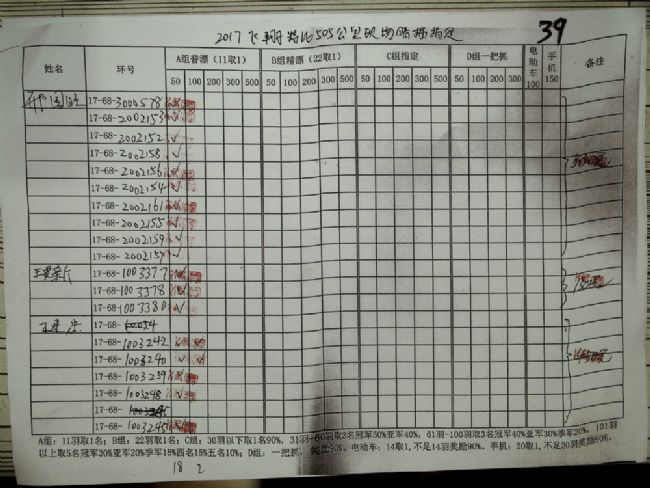 39
2017飞翔特比505公里
姓名 环号 A组普漂(11取1) B组精漂(22取1) C组指定 D组一把抓 电动车 手机 备注
50 100 200 300 500 50 100 200 300 500 50 100 200 300 500 50 100 200 300 100 150
17-68-3000578
17-68-2002153
17-68-2002152
17-68-2002158
17-68-2002156
17-68-2002154
17-68-2002161
17-68-2002155
17-68-2002159
17-68-2002157
17-68-1003377
17-68-1003378
17-68-1003380
17-68-
17-68-1003242
17-68-1003240
17-68-1003239
17-68-1003248
17-68-
17-68-1003245
A组: 11羽取1名; B组: 22羽取1名; C组: 30羽以下取1名90%, 31羽-60羽取2名冠军50%亚军40%, 61羽-100羽取3名冠军40%亚军30%季军20%, 101羽
以上取5名冠军30%亚军20%季军15%四名15%五名10%; D组: 一把抓, 奖励90%. 电动车: 14取1,不足14羽奖励90%. 手机: 20取1,不足20羽奖励90%.
18 2